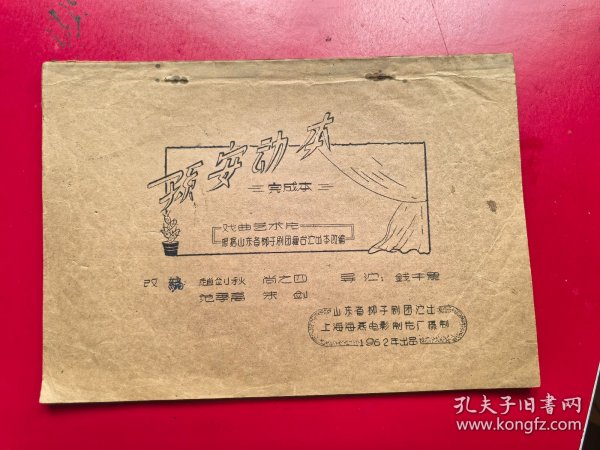 项安动本
完成本
戏曲艺术片
根据山东省柳子剧团舞台演出本改编
改编：赵剑秋 尚之四 导演：钱千里
范季高 朱剑
山东省柳子剧团演出
上海海燕电影制片厂摄制
1962年出品
孔夫子旧书网
www.kongfz.com